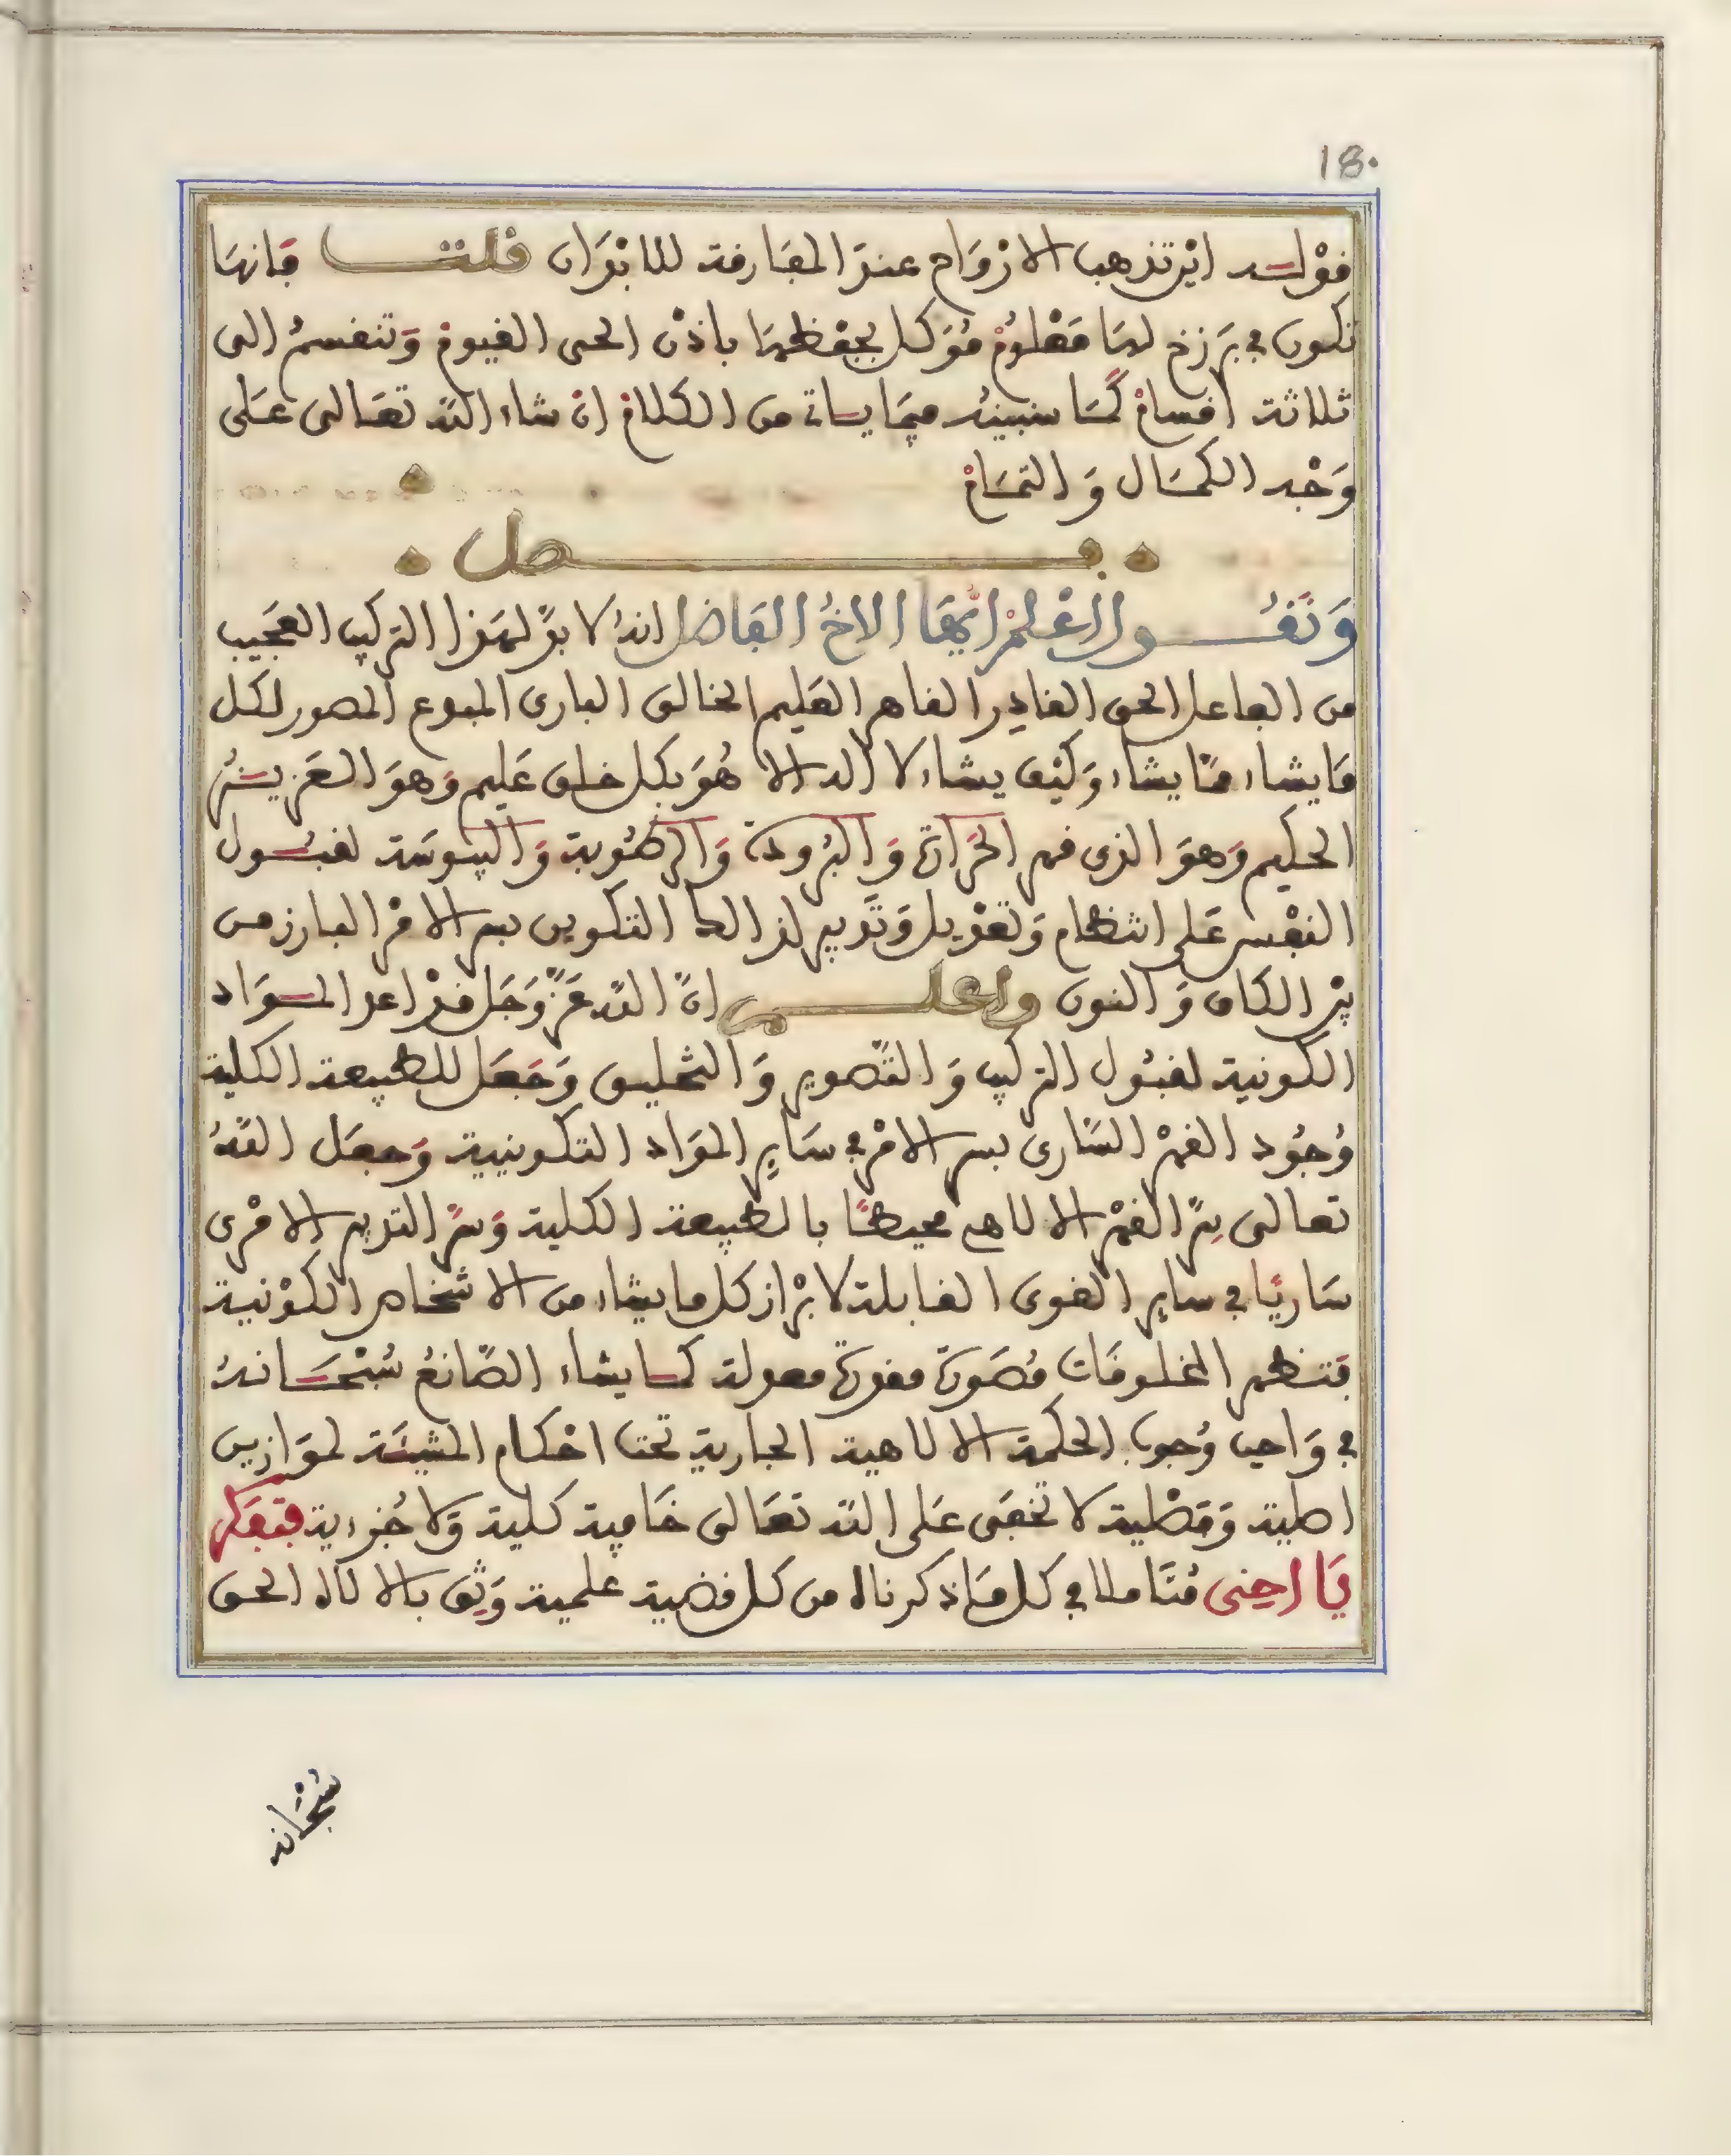 18.
قوله اين تذهب الارواح عند المفارقة للابدان قلت فانها
تكون في برزخ لها معلوم موكل بحفظها باذن الحى القيوم وتنقسم الى
ثلاثة اقسام كما سنبينه فيما ياتي من الكلام ان شاء الله تعالى على
وجه الكمال والتمام
فصل
ونقول اعلم ايها الاخ الفاضل انه لا بد لهذا التركيب العجيب
من الفاعل الحق القادر القاهر العليم الخالق البارى المبدع المصور لكل
ما يشاء مما يشاء وكيف يشاء لا اله الا هو بكل خلق عليم وهو العزيز
الحكيم وهو الذى قهر الحرارة والبرودة والرطوبة واليبوسة لقبول
النفس على انتظام وتعديل وتدبير لذالك التكوين بسر الامر البارز من
بين الكاف والنون واعلم ان الله عز وجل قد اعد المواد
الكونية لقبول التركيب والتصوير والتخليق وجعل للطبيعة الكلية
وجود القهر السارى بسر الامر في ساير المواد التكوينية وجعل الله
تعالى سر القهر الالاهي محيطا بالطبيعة الكلية وسر التدبير الامرى
ساريا في ساير القوى القابلة لابراز كل ما يشاء من الاشخاص الكونية
فتظهر المخلوقات مصورة مقدرة معدلة كما يشاء الصانع سبحانه
في واجب وجوب الحكمة الالاهية الجارية تحت احكام المشيئة لموازين
اصلية وفصلية لا تخفى على الله تعالى خافية كلية ولا جزءية فتفكر
يا اخى متاملا في كل ما ذكرناه من كل قضية علمية وثق بالالاه الحق
سبحانه